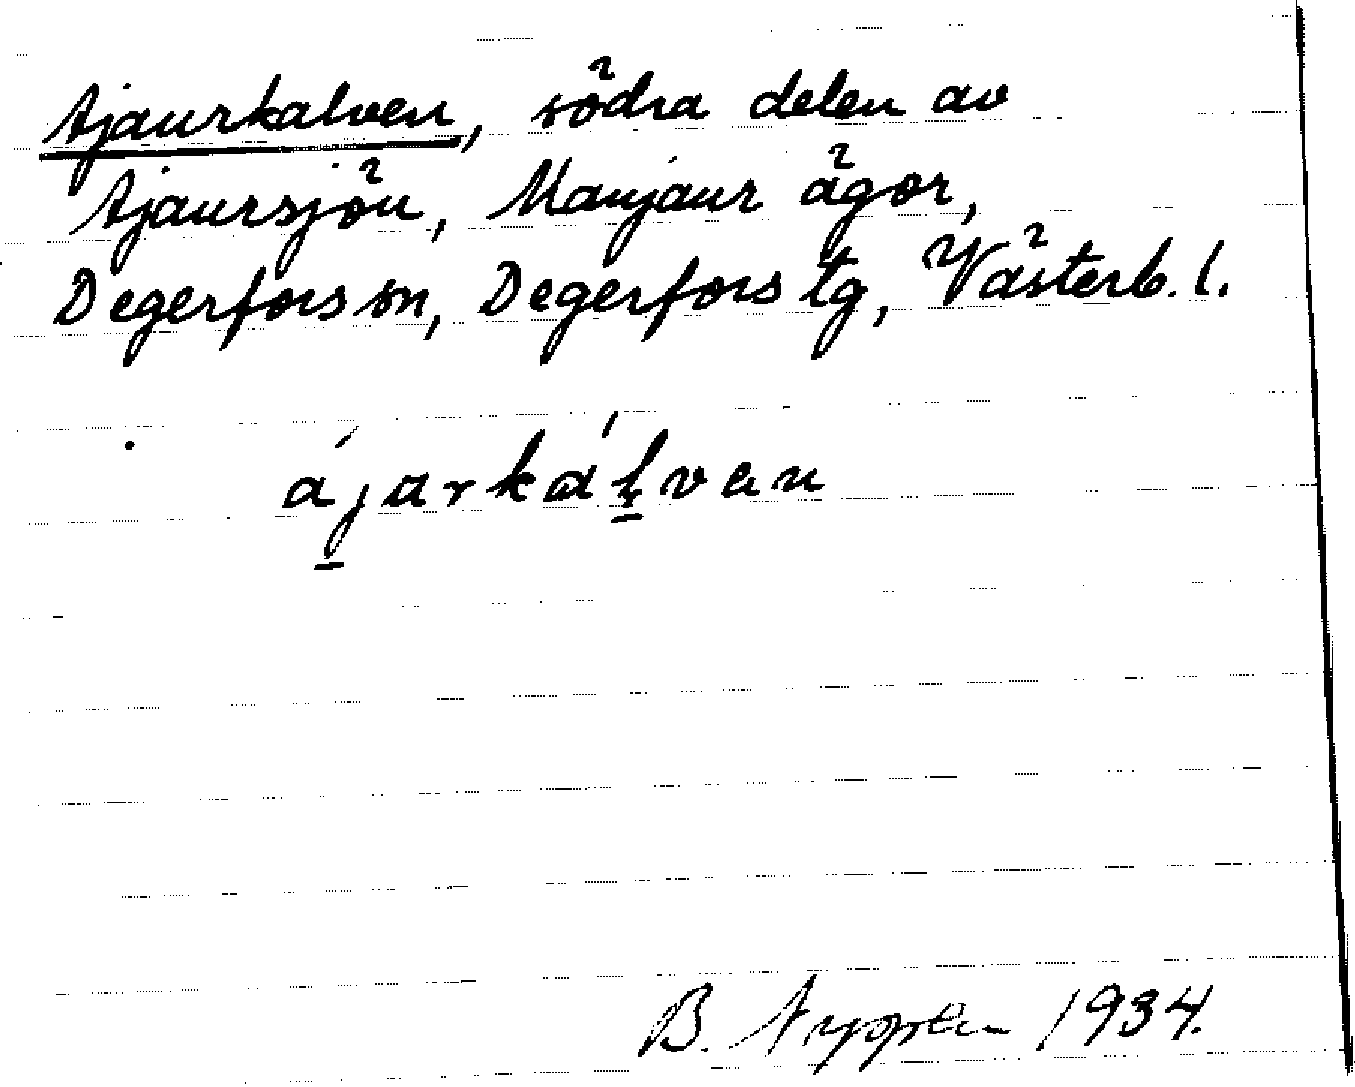 Ajaurkalven, södra delen av
Ajaursjön, Manjaur ägor,
Degerfors sn, Degerfors tg, Västerb. l.
ájarkálvən
B. 1934.